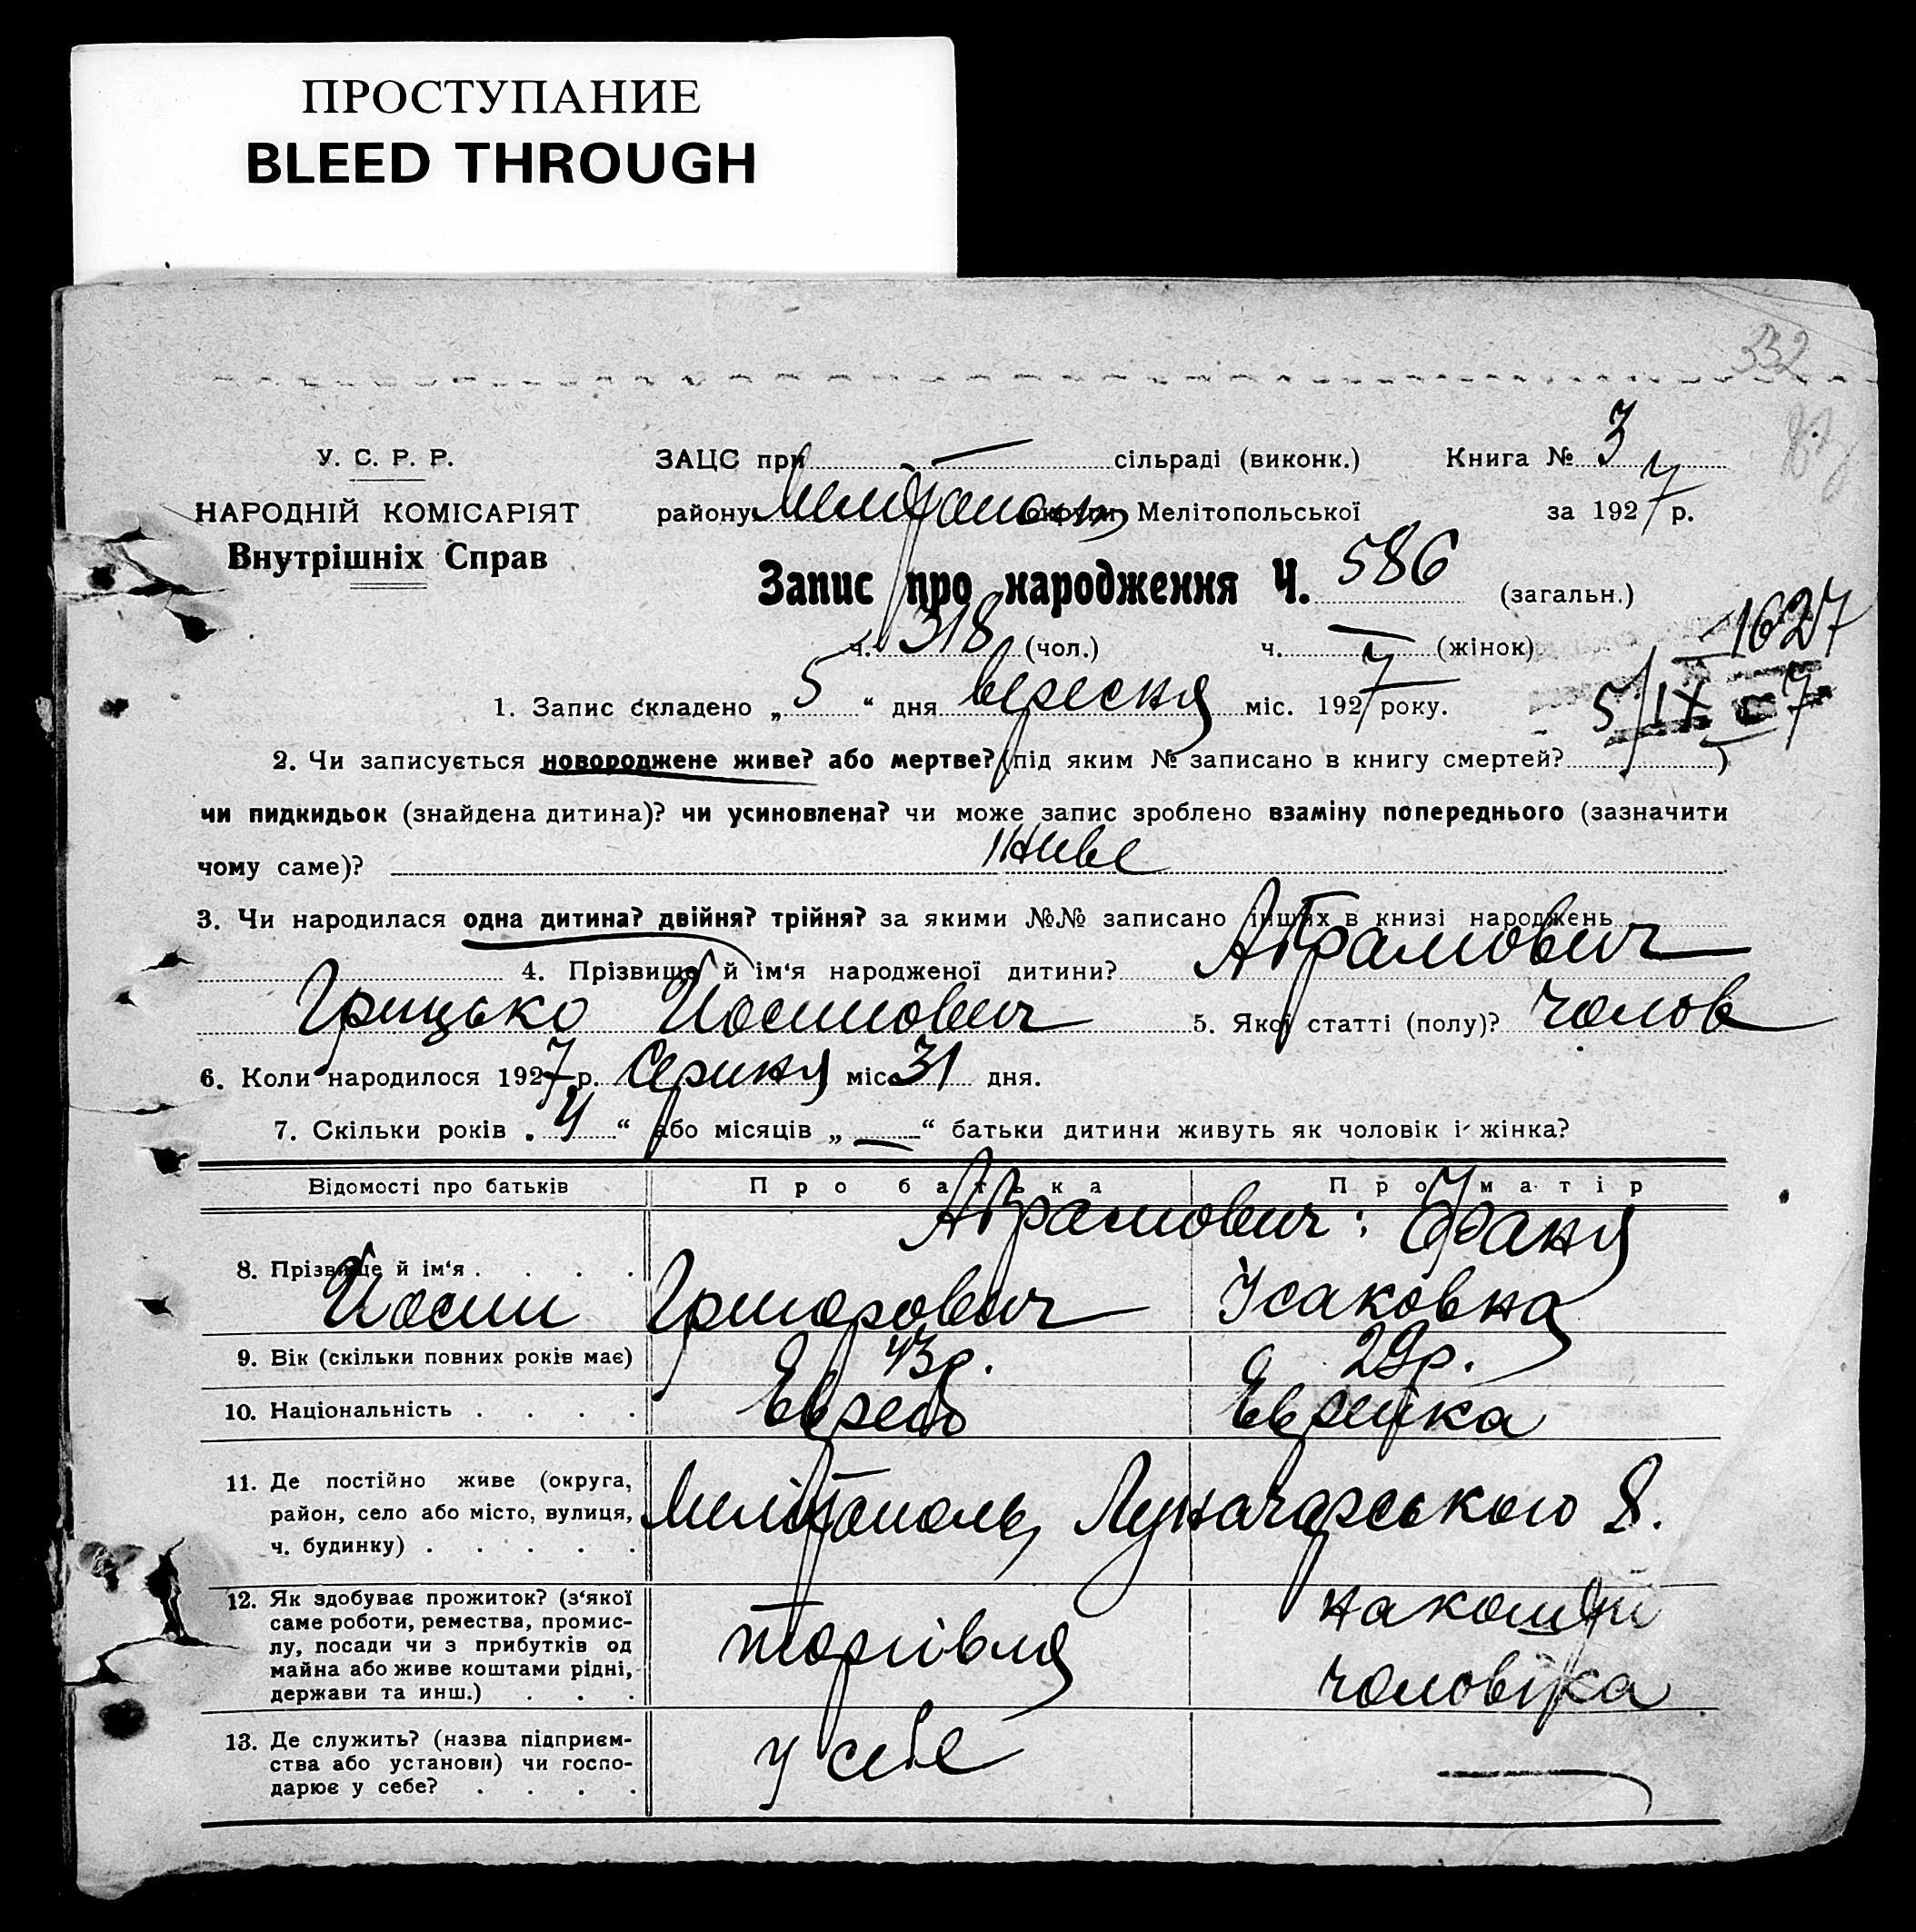 ПРОСТУПАНИЕ
BLEED THROUGH
332
У. С. Р. Р.
НАРОДНІЙ КОМІСАРІЯТ
Внутрішніх Справ
ЗАЦС при — сільраді (виконк.) Книга № 3
району Мелітополь округи Мелітопольської за 1927 р.
Запис про народження Ч. 586 (загальн.)
ч. 318 (чол.) ч. — (жінок)
1627
5/IX 7
1. Запис складено „ 5 “ дня вересня міс. 1927 року.
2. Чи записується новороджене живе? або мертве? (під яким № записано в книгу смертей? )
чи пидкидьок (знайдена дитина)? чи усиновлена? чи може запис зроблено взаміну попереднього (зазначити
чому саме)? живе
3. Чи народилася одна дитина? двійня? трійня? за якими №№ записано інших в книзі народжень
4. Прізвище й ім'я народженої дитини? Абрамович
Грицько Йосипович 5. Якої статті (полу)? чолов
6. Коли народилося 1927 р. Серпня міс. 31 дня.
7. Скільки років „ 4 “ або місяців „ — “ батьки дитини живуть як чоловік і жінка?
Відомості про батьків Про батька Про матір
Абрамович: Фаня
8. Прізвище й ім'я . . . .
Йосип Григорович Ісаковна
9. Вік (скільки повних років має) 43р. 29р.
10. Національність . . . . Еврей Еврейка
11. Де постійно живе (округа,
район, село або місто, вулиця,
ч. будинку) . . . . .
Мелітополь, Луначарського 8.
12. Як здобуває прожиток? (з'якої
саме роботи, ремества, промис-
лу, посади чи з прибутків од
майна або живе коштами рідні,
держави та инш.) . . .
торгівля
на кошти
чоловіка
13. Де служить? (назва підприєм-
ства або установи) чи госпо-
дарює у себе? . . . .
у себе —